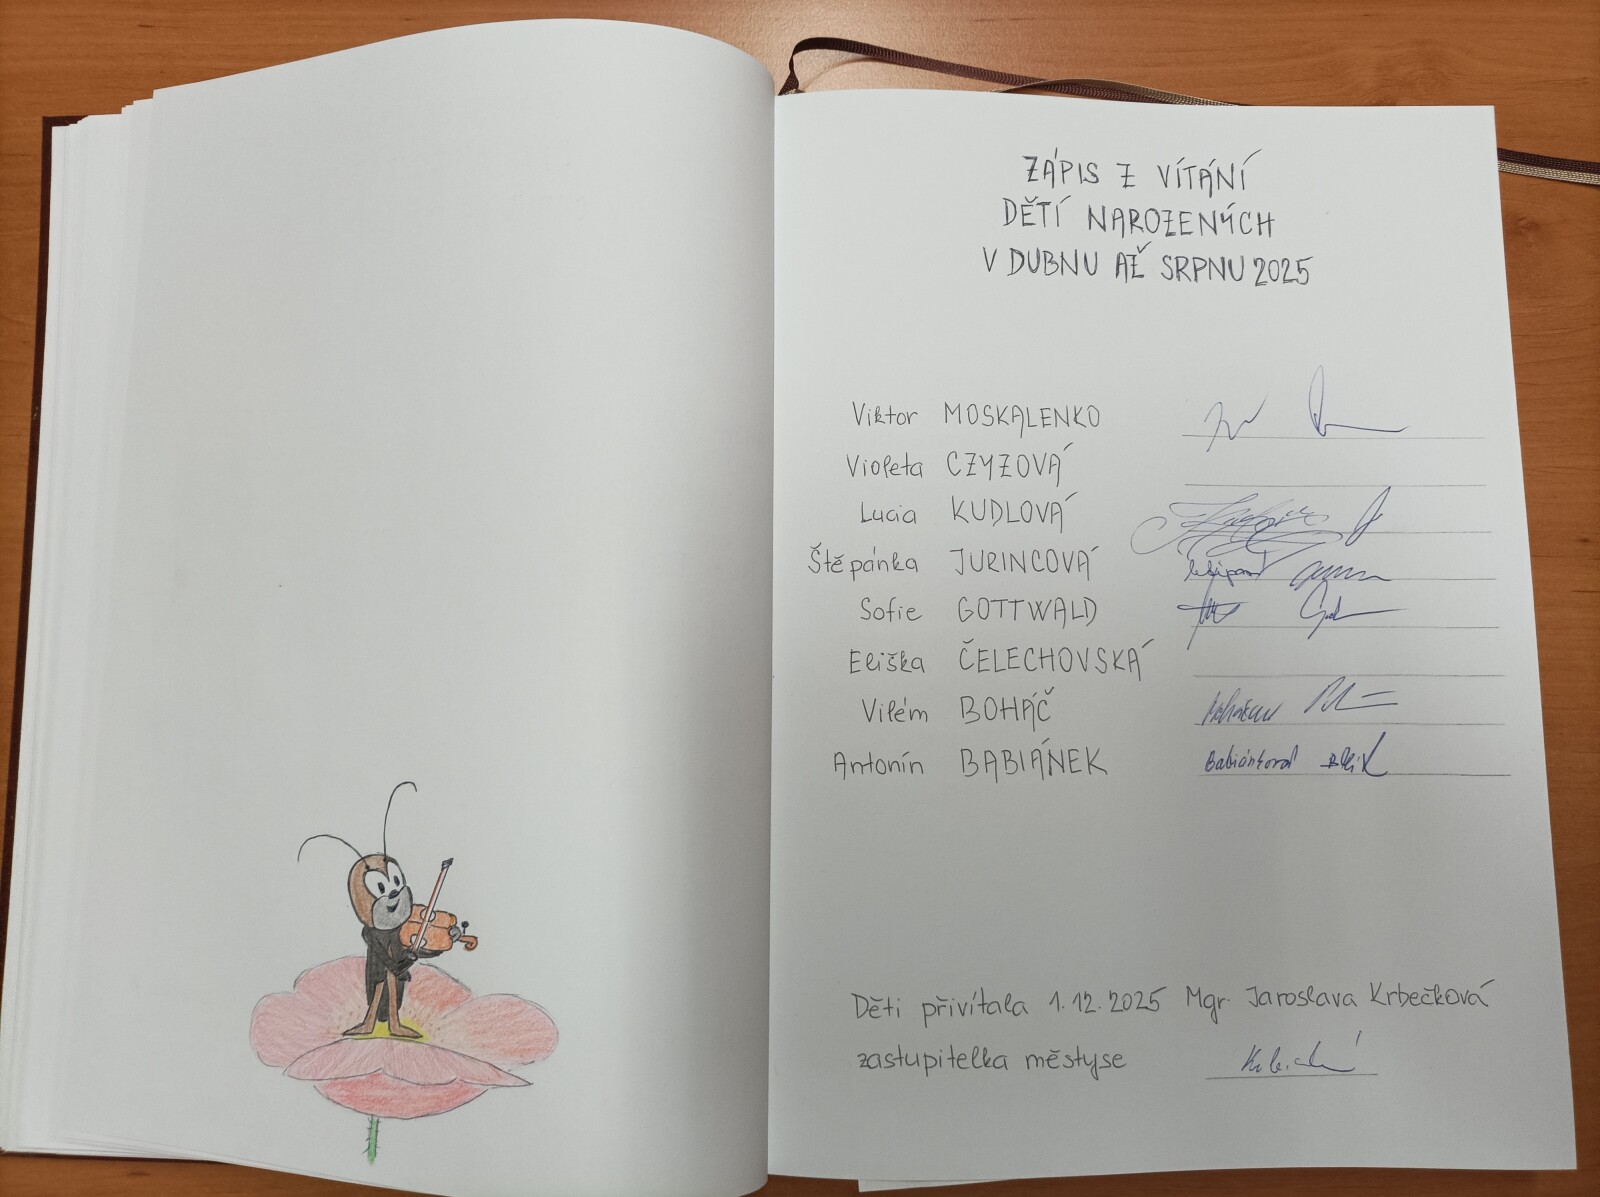 ZÁPIS Z VÍTÁNÍ
DĚTÍ NAROZENÝCH
V DUBNU AŽ SRPNU 2025
Viktor MOSKALENKO
Violeta CZYZOVÁ
Lucia KUDLOVÁ
Štěpánka JURINCOVÁ
Sofie GOTTWALD
Eliška ČELECHOVSKÁ
Vilém BOHÁČ
Antonín BABIÁNEK Babiánková
Děti přivítala 1.12.2025 Mgr. Jaroslava Krbečková
zastupitelka městyse